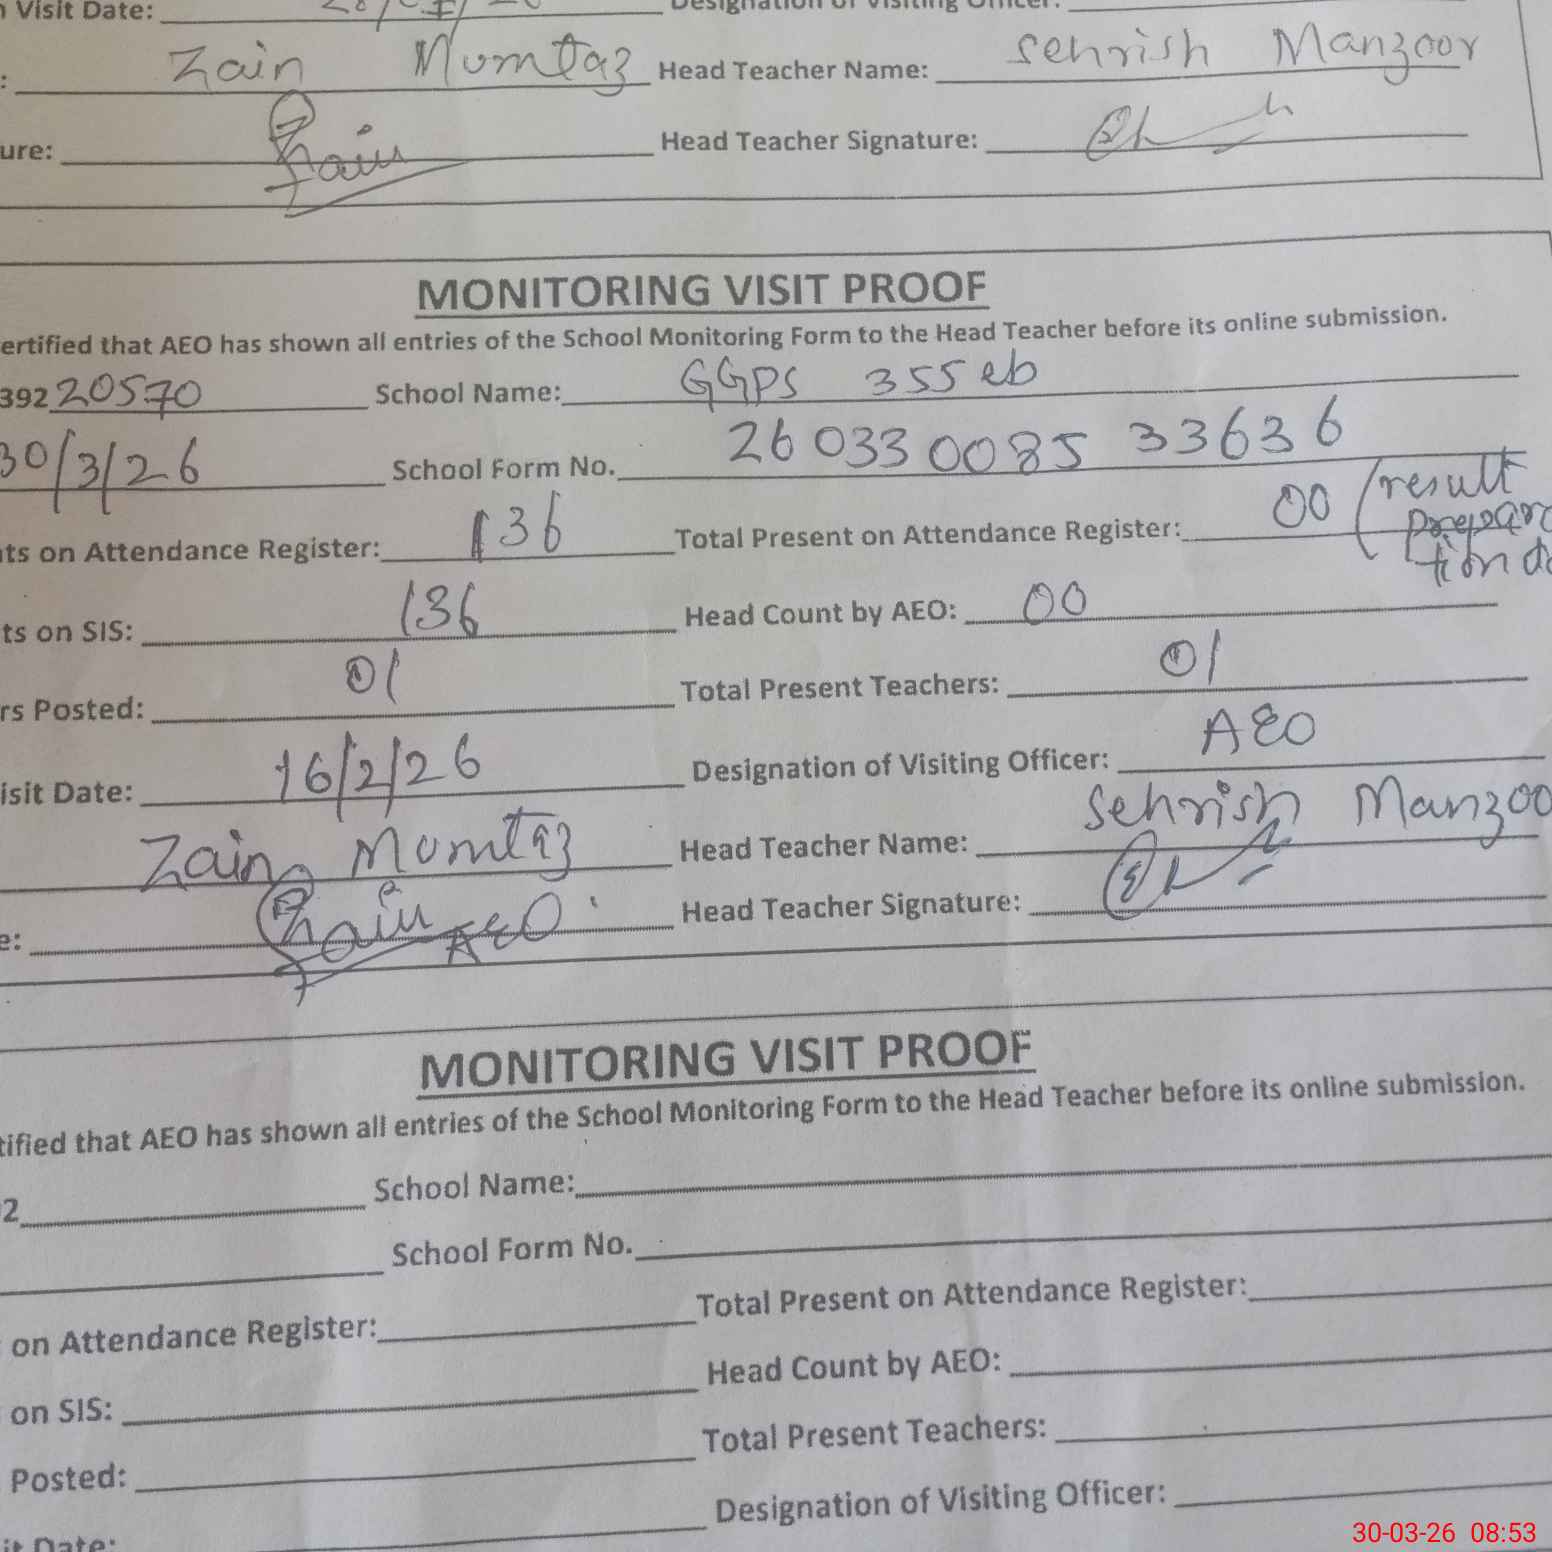 Visit Date: Designation of Visiting Officer:
: Zain Mumtaz Head Teacher Name: Sehrish Manzoor
ure: Zain Head Teacher Signature:
MONITORING VISIT PROOF
ertified that AEO has shown all entries of the School Monitoring Form to the Head Teacher before its online submission.
39220570 School Name: GGPS 355 eb
30/3/26 School Form No. 26033008533636
ts on Attendance Register: 136 Total Present on Attendance Register: 00 (result
preparation
ts on SIS: 136 Head Count by AEO: 00
rs Posted: 01 Total Present Teachers: 01
isit Date: 16/2/26 Designation of Visiting Officer: AEO
Zain Mumtaz Head Teacher Name: Sehrish Manzoo
e: Zain AEO Head Teacher Signature:
MONITORING VISIT PROOF
tified that AEO has shown all entries of the School Monitoring Form to the Head Teacher before its online submission.
2 School Name:
School Form No.
on Attendance Register: Total Present on Attendance Register:
on SIS: Head Count by AEO:
Posted: Total Present Teachers:
it Date: Designation of Visiting Officer:
30-03-26 08:53